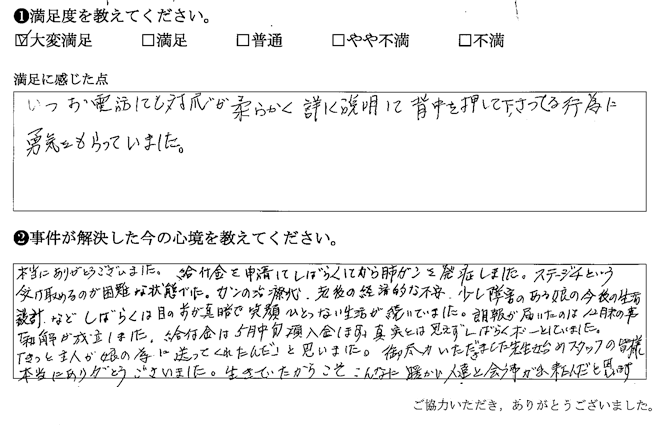 ❶満足度を教えてください。
☑大変満足 □満足 □普通 □やや不満 □不満
満足に感じた点
いつお電話しても対応が柔らかく詳しく説明して背中を押して下さってる行為に
勇気をもらっていました。
❷事件が解決した今の心境を教えてください。
本当にありがとうございました。給付金を申請してしばらくしてから肺ガンを発症しました。ステージ4という
受け取めるのが困難な状態でした。ガンの治療代、老後の経済的な不安、少し障害のある娘の今後の生活
設計などしばらくは目の前が真暗で笑顔ひとつない生活が続いていました。朗報が届いたのは 月末の事
和解が成立しました、給付金は5月中旬頃入金 真実とは思えずしばらくボーとしていました。
「きっと主人が娘の為に送ってくれたんだ」と思いました。御尽力いただきました先生始めスタッフの皆様
本当にありがとうございました。生きていたからこそこんなに暖かい人達と会う事が出来たんだと思
ご協力いただき，ありがとうございました。